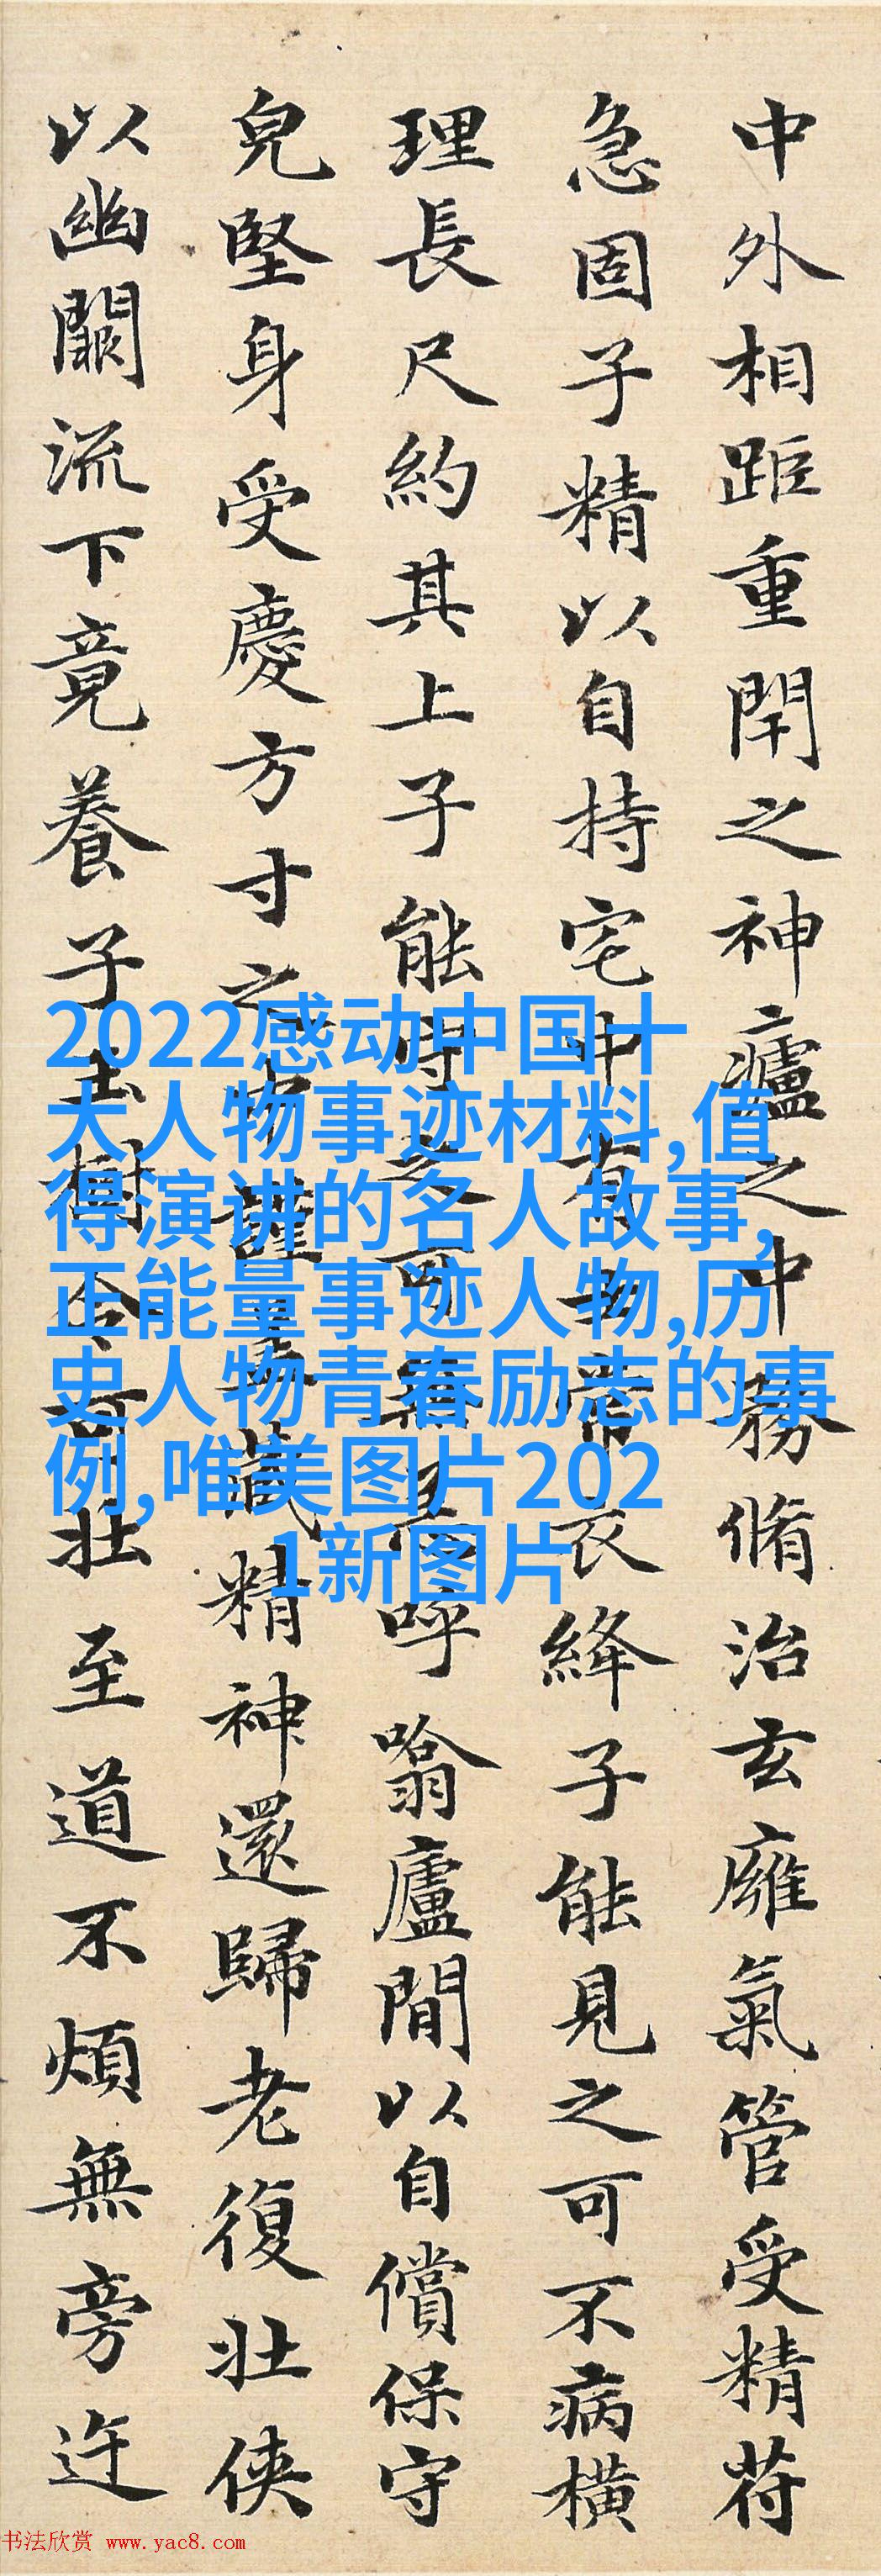 中外相距重閇之神廬之中務脩治玄癰氣管受精苻
急固子精以自持宅中有士常衣絳子能見之可不病橫
理長尺約其上子能守之可無恙呼噏廬間以自償保守
皃堅身受慶方寸之中謹蓋藏精神還歸老復壯俠
以幽闕流下竟養子玉樹令可壯至道不煩無旁迕
2022感动中国十
大人物事迹材料,值
得演讲的名人故事,
正能量事迹人物,历
史人物青春励志的事
例,唯美图片202
1新图片
书法欣赏 www.yac8.com